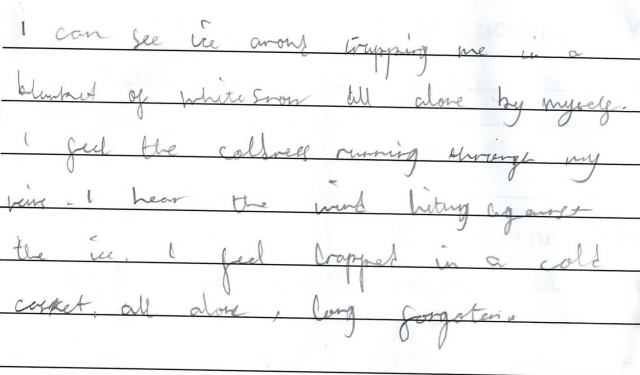 I can see ice around trapping me in a
blanket of white snow all alone by myself.
I feel the coldness running through my
veins. I hear the wind hitting against
the ice. I feel trapped in a cold
casket, all alone, long forgoten.